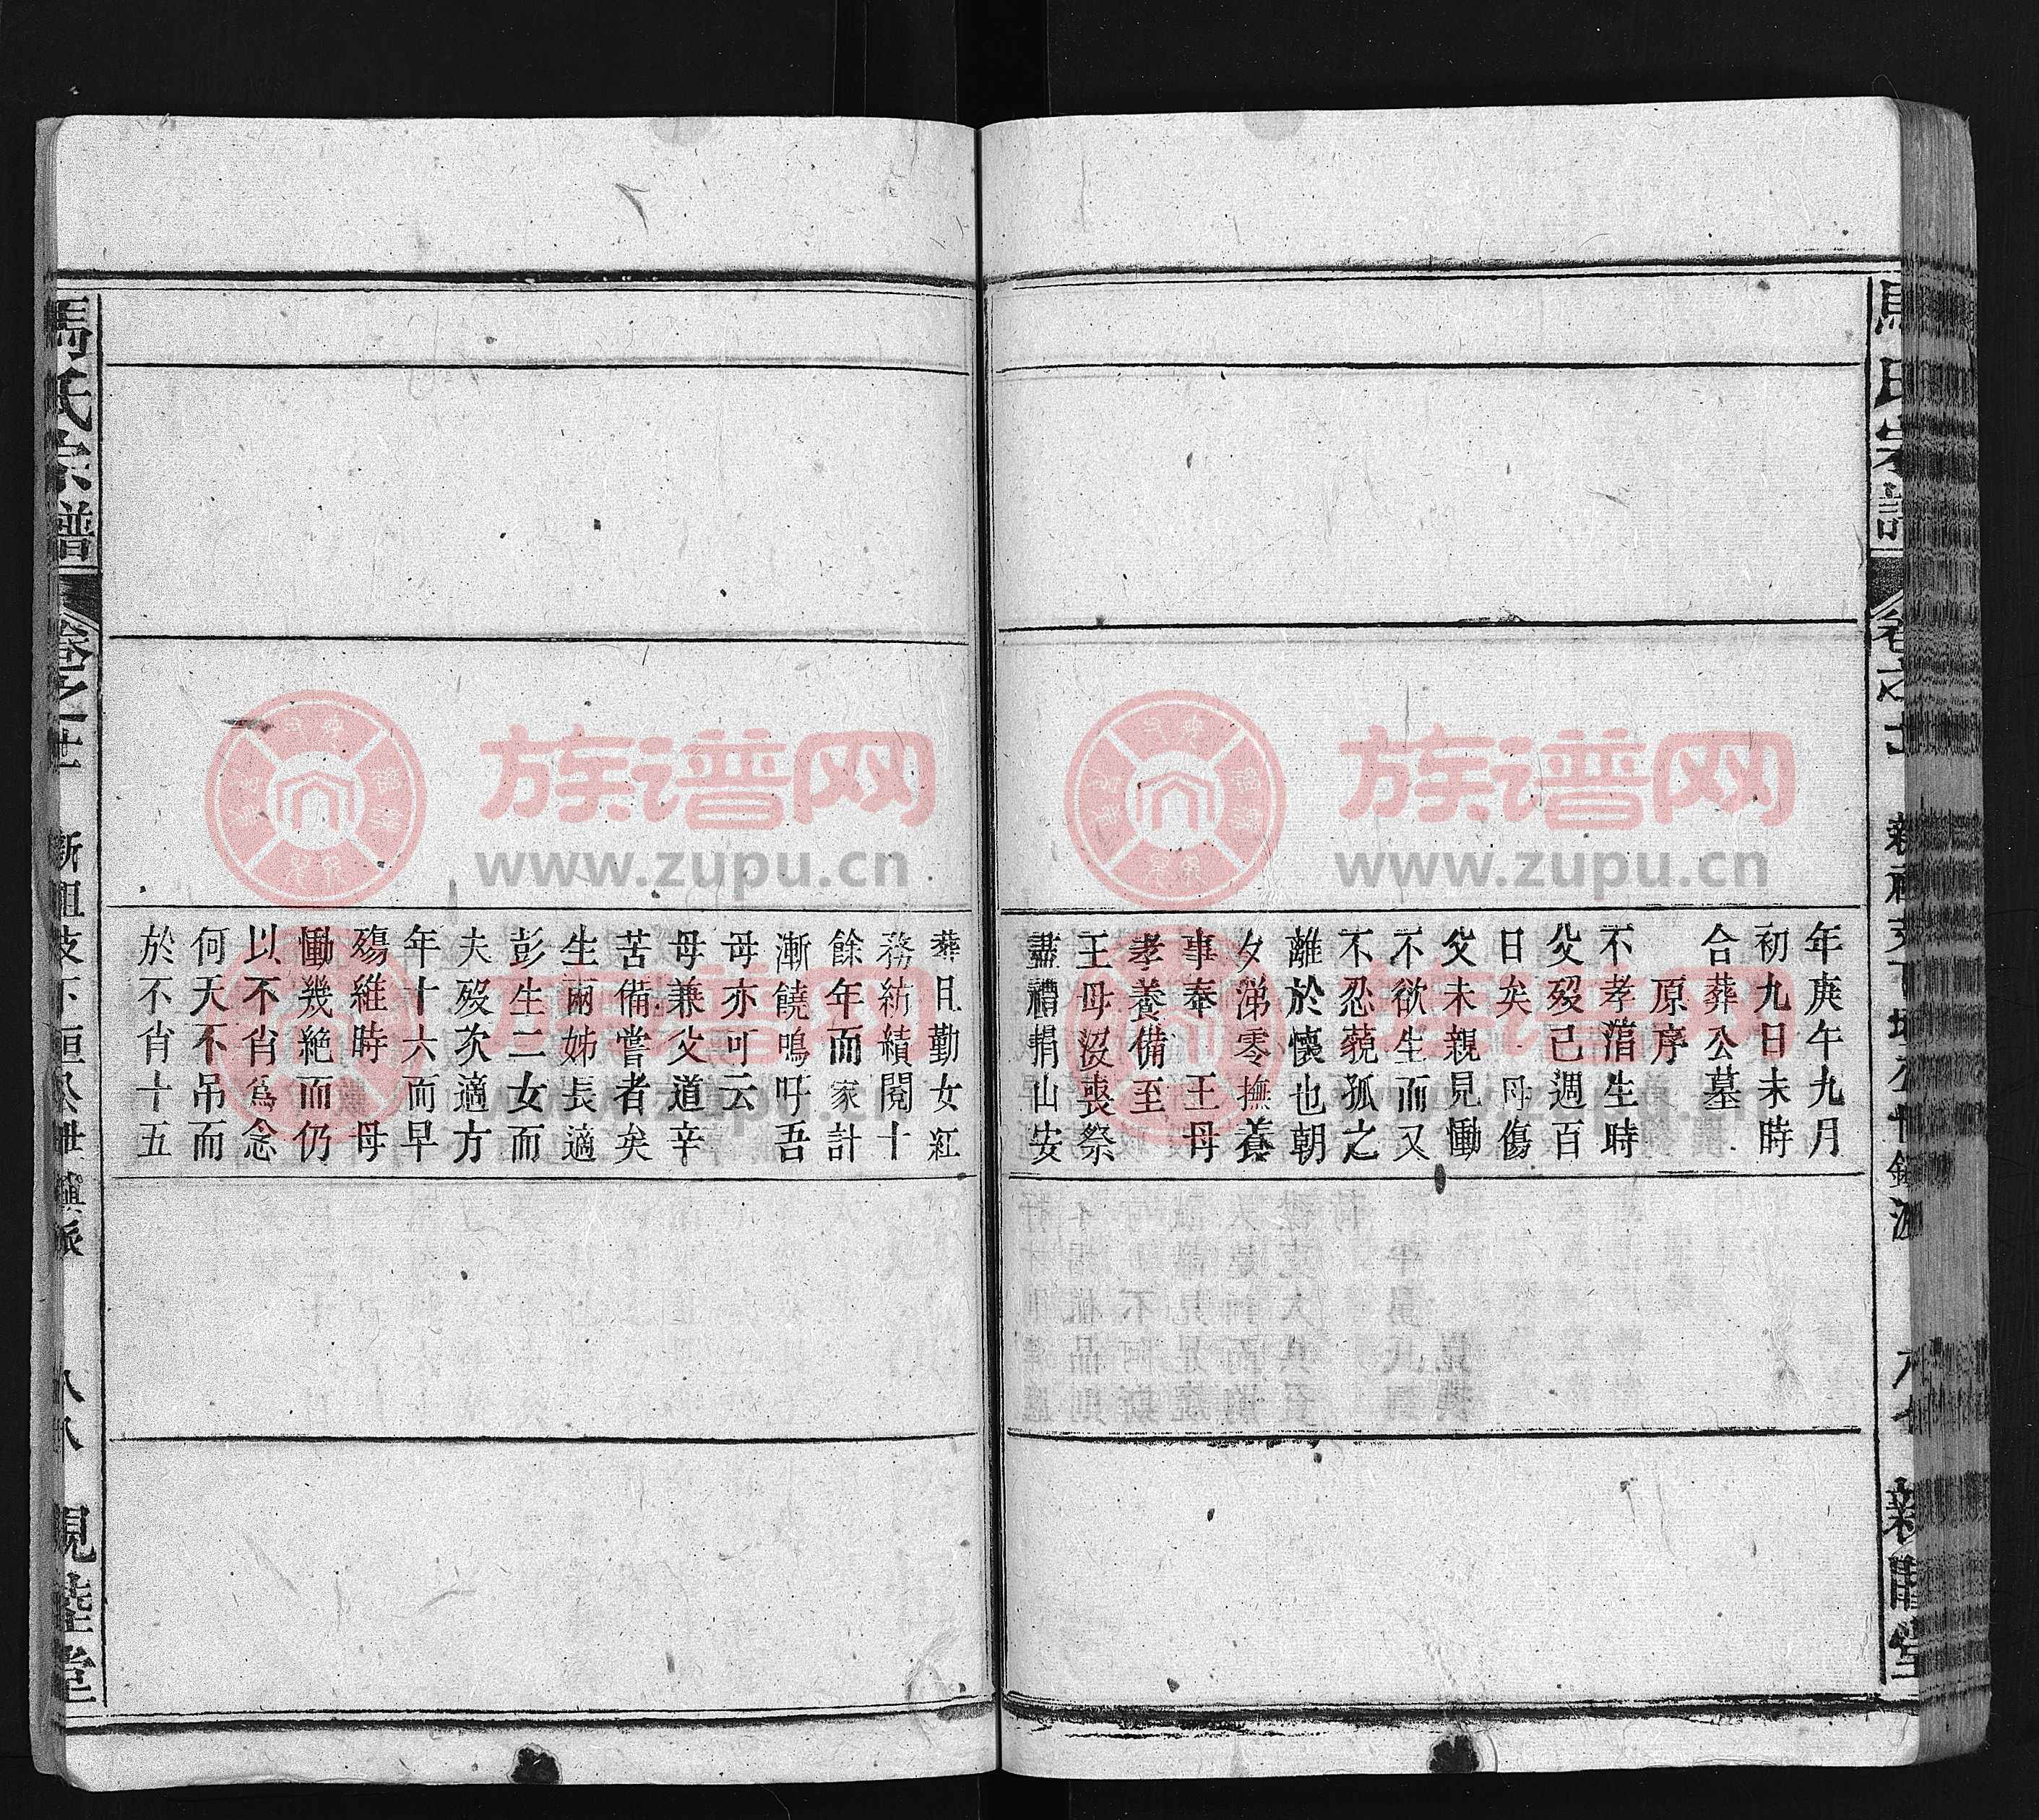 年庚午九月
初九日未時
合葬公墓
原序
不孝㵙生時
父歿已週百
日矣　母傷
父未親見慟
不欲生而又
不忍藐孤之
離於懷也朝
夕涕零撫養
事奉　王母
孝養備至
王母沒喪祭
盡禮捐山安
葬且勤女紅
務紡績閱十
餘年而家計
漸饒嗚呼吾
母亦可云
母兼父道辛
苦備嘗者矣
生兩姊長適
彭生二女而
夫歿次適方
年十六而早
殤維時　母
慟幾絕而仍
以不肖爲念
何天不吊而
於不肖十五
馬氏宗譜
卷之
八八
親睦堂
族谱网
www.zupu.cn
族谱网
www.zupu.cn